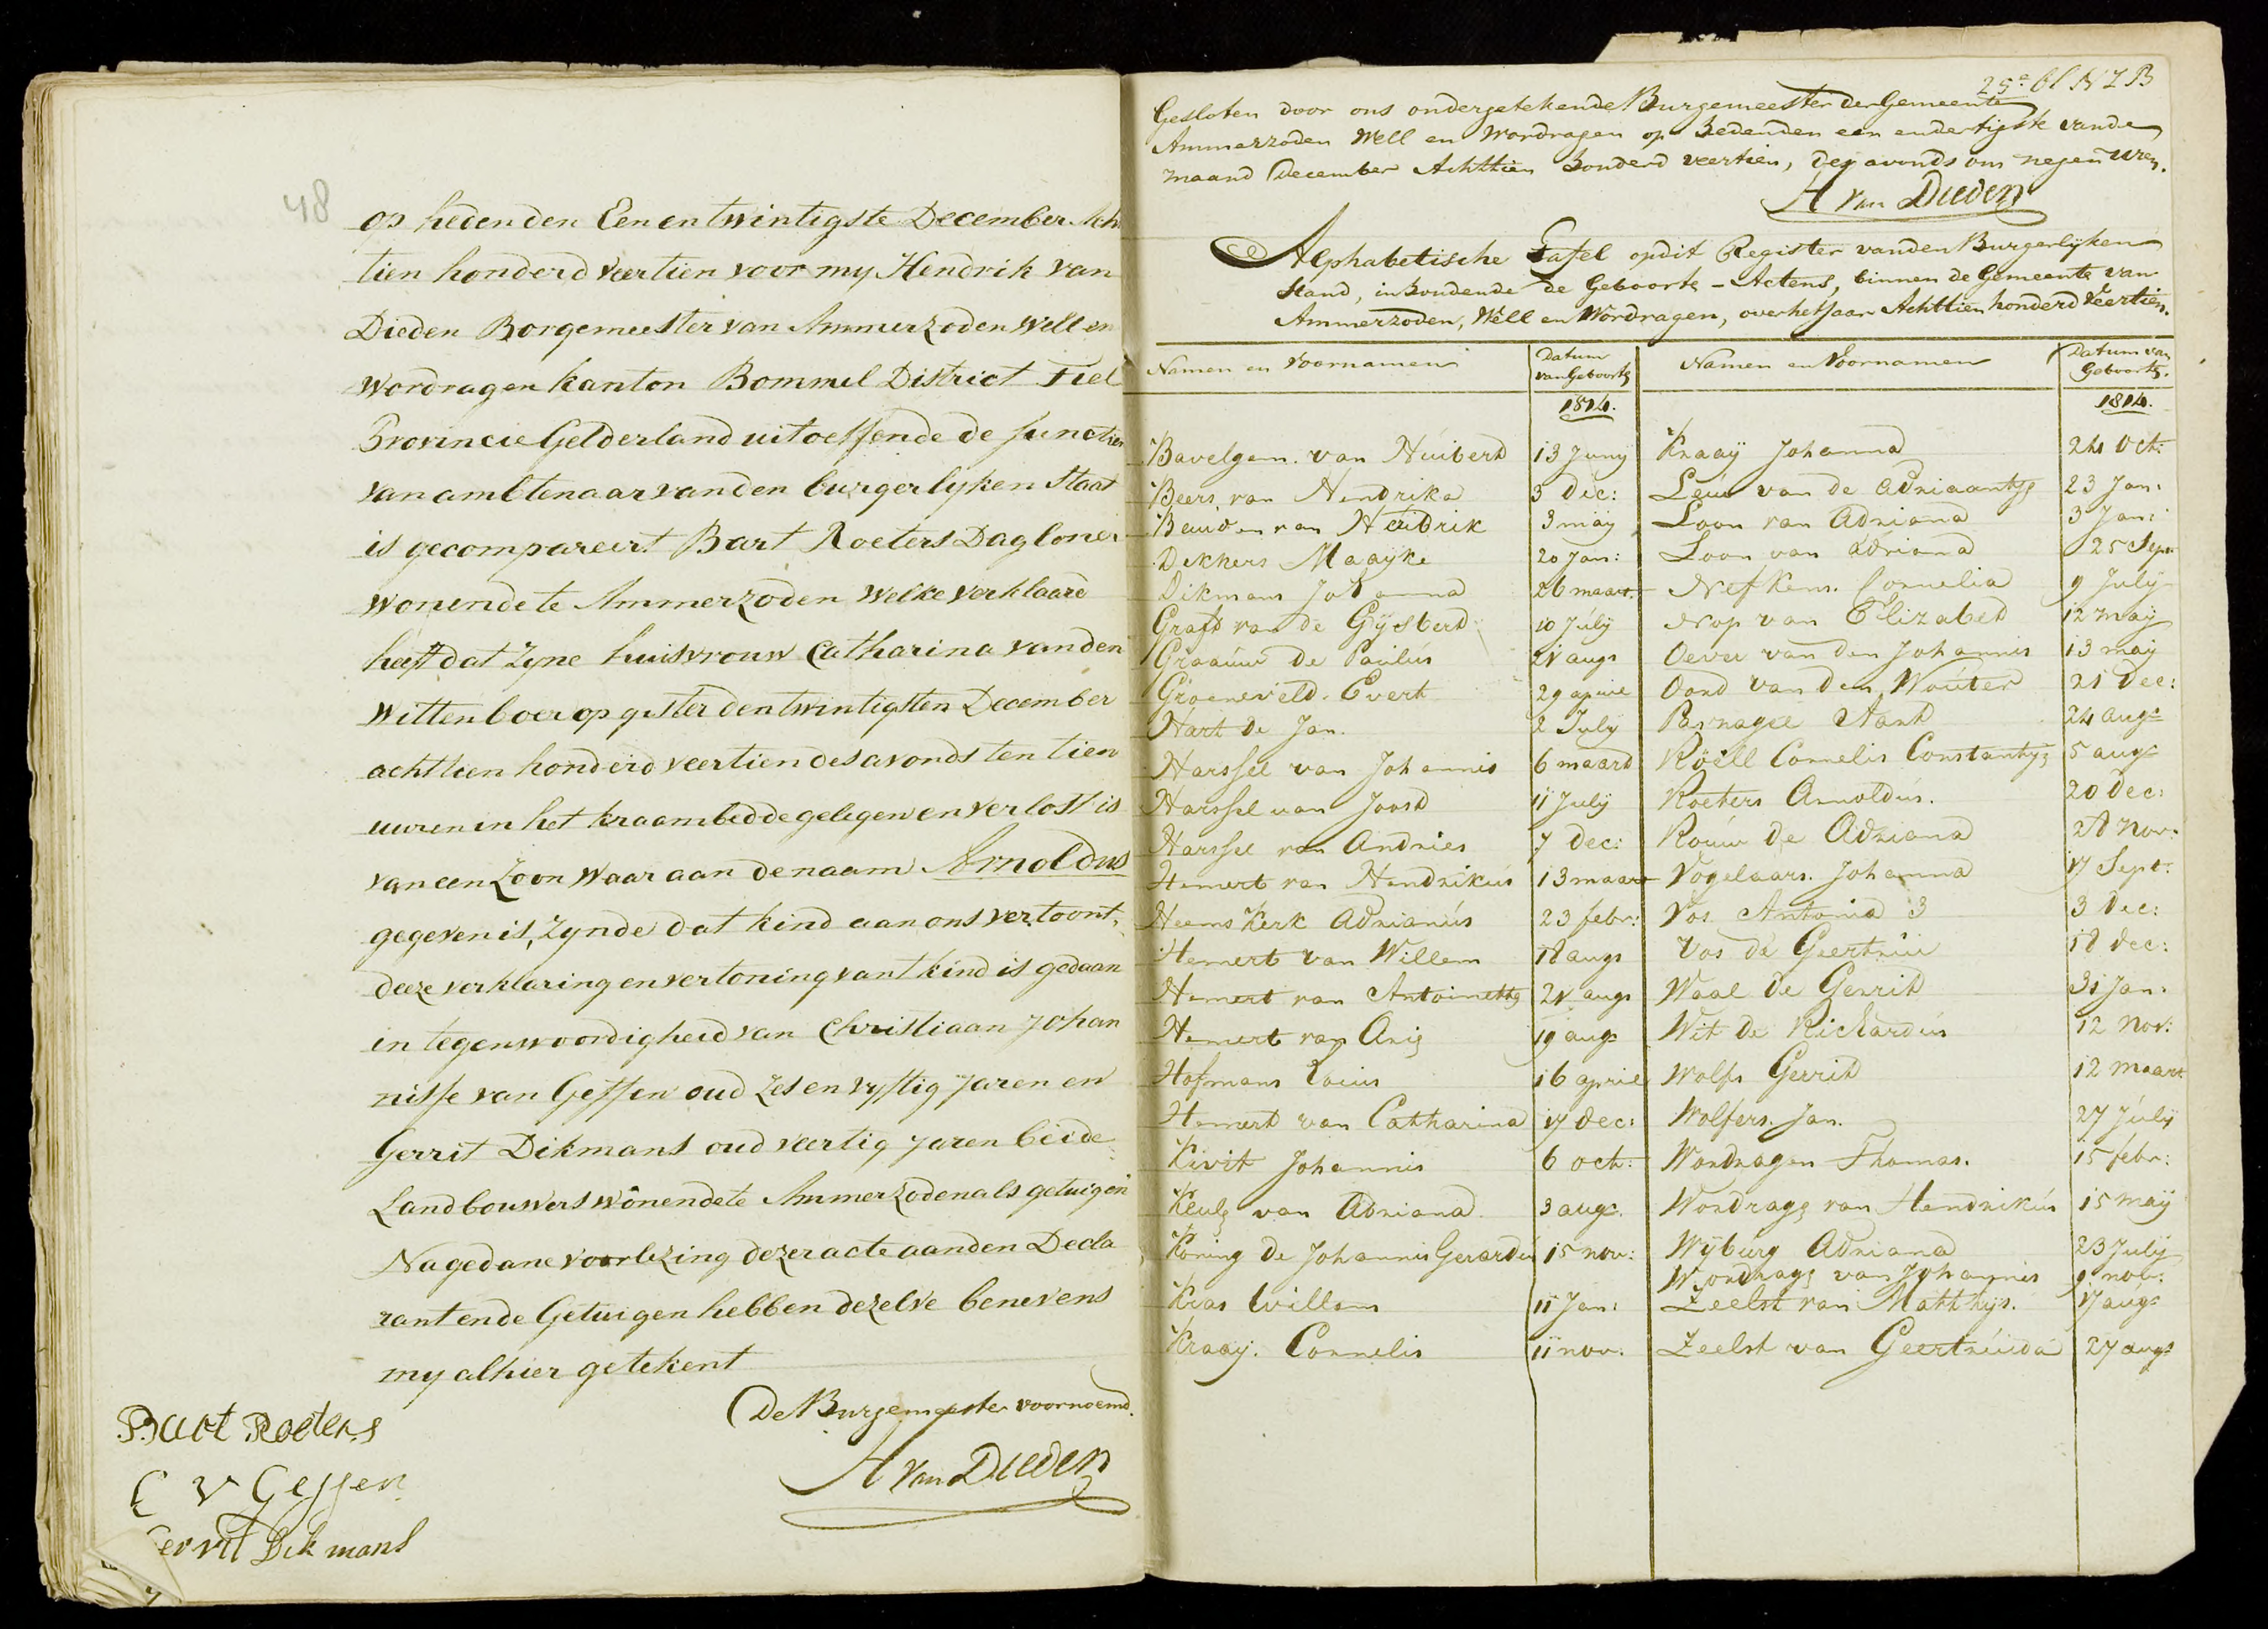 48
op heden den Eenentwintigste December Ach
tien honderd veertien voor my Hendrik van
Dieden Borgemeester van Ammerzoden Well en
Wordragen kanton Bommel District Tiel
Provincie Gelderland uitoeffende de functien
van ambtenaar van den burgerlyken Staat
is gecompareert Bart Roeters Dagloner
wonende te Ammerzoden welke verklaard
heeft dat zyne huisvrouw Catharina van den
Wittenboer op gister den twintigsten December
achttien honderd veertien des avonds ten tien
uuren in het kraambedde gelegen en verlost is
van een Zoon waar aan de naam Arnoldus
gegeven is, zynde dat kind aan ons vertoont,
deeze verklaring en vertoning vant kind is gedaan
in tegenwoordigheid van Christiaan Johan
nisse van Geffen oud zes en vyftig jaren en
Gerrit Dikmans oud veertig jaren beide
Landbouwers wonende te Ammerzoden als getuigen
Na gedane voorlezing dezer acte aan den Decla
rant en de Getuigen hebben dezelve benevens
my alhier getekent
De Burgemeester voornoemd.
H van Dieden
Bart Roeters
C V Geffen
Gerrit Dikmans
25e bl N 2 B
Gesloten door ons ondergetekende Burgemeester der Gemeente
Ammerzoden Well en Wordragen op hedenden een endertigste vande
maand December Achttien honderd veertien, des avonds om negen uren.
H van Dieden
Alphabetische Tafel op dit Register van den Burgerlyken
stand, inhoudende de Geboorte-Actens, binnen de Gemeente van
Ammerzoden, Well en Wordragen, over het jaar Achttien honderd Veertien.
Namen en Voornamen Datum van Geboorte Namen en Voornamen Datum van Geboorte.
1814. 1814.
Bavelgem. van Huibert 13 Juny Kraaÿ Johanna 24 Oct:
Beers van Hendrika 3 dec: Leúw van de Adriaantje 23 Jan:
Beuden van Hendrik 3 maÿ Loon van Adriana 3 Jan:
Dekkers Maayke 20 Jan: Loon van Adriana 25 Sept
Dikmans Johanna 26 maart. Nefkens. Cornelia 9 July
Graaf van de Gysbert 10 Júlÿ Nop van Elizabet 12 maÿ
Graaúw de Paúlús 21 augs Oever van den Johannis 13 maÿ
Groeneveld. Evert 29 april Oord van den Woúter 21 Dec:
Hart de Jan. 2 July Parnagie Aart 24 augs
Harssel van Johannis 6 maard Röell Cornelis Constantyn 5 augs
Harssel van Joost 11 July Roeters Arnoldús. 20 Dec:
Harssel van Andries 7 Dec: Roúw de Adriana 28 Nov:
Hemert van Hendrikus 13 maart Vogelaars. Johanna 17 Sept:
Heemskerk Adrianús 23 febr: Vos Antonia 3 3 Dec:
Hemert van Willem 18 augs Vos de Geertrui 18 dec:
Hemert van Antoinette 21 augs Waal de Gerrit 31 Jan:
Hemert van Arie 19 augs Wit de Richardús 12 Nov:
Hofmans Loius 16 april Wolfs Gerrit 12 maart
Hemert van Catharina 17 Dec: Wolfers. Jan. 27 Júlÿ
Kivit Johannis 6 oct: Wordragen Thomas. 15 febr:
Keule van Adriana 3 augs. Wordrage van Hendrikús 15 maÿ
Koning de Johannis Gerardus 15 nov: Wÿbúrg Adriana 23 July
Wordrage van Johannis 9 nov:
Kras Willem 11 Jan: Zeelst van Matthys. 17 augs
Kraay. Cornelis 11 nov. Zeelst van Geertruida 27 augs